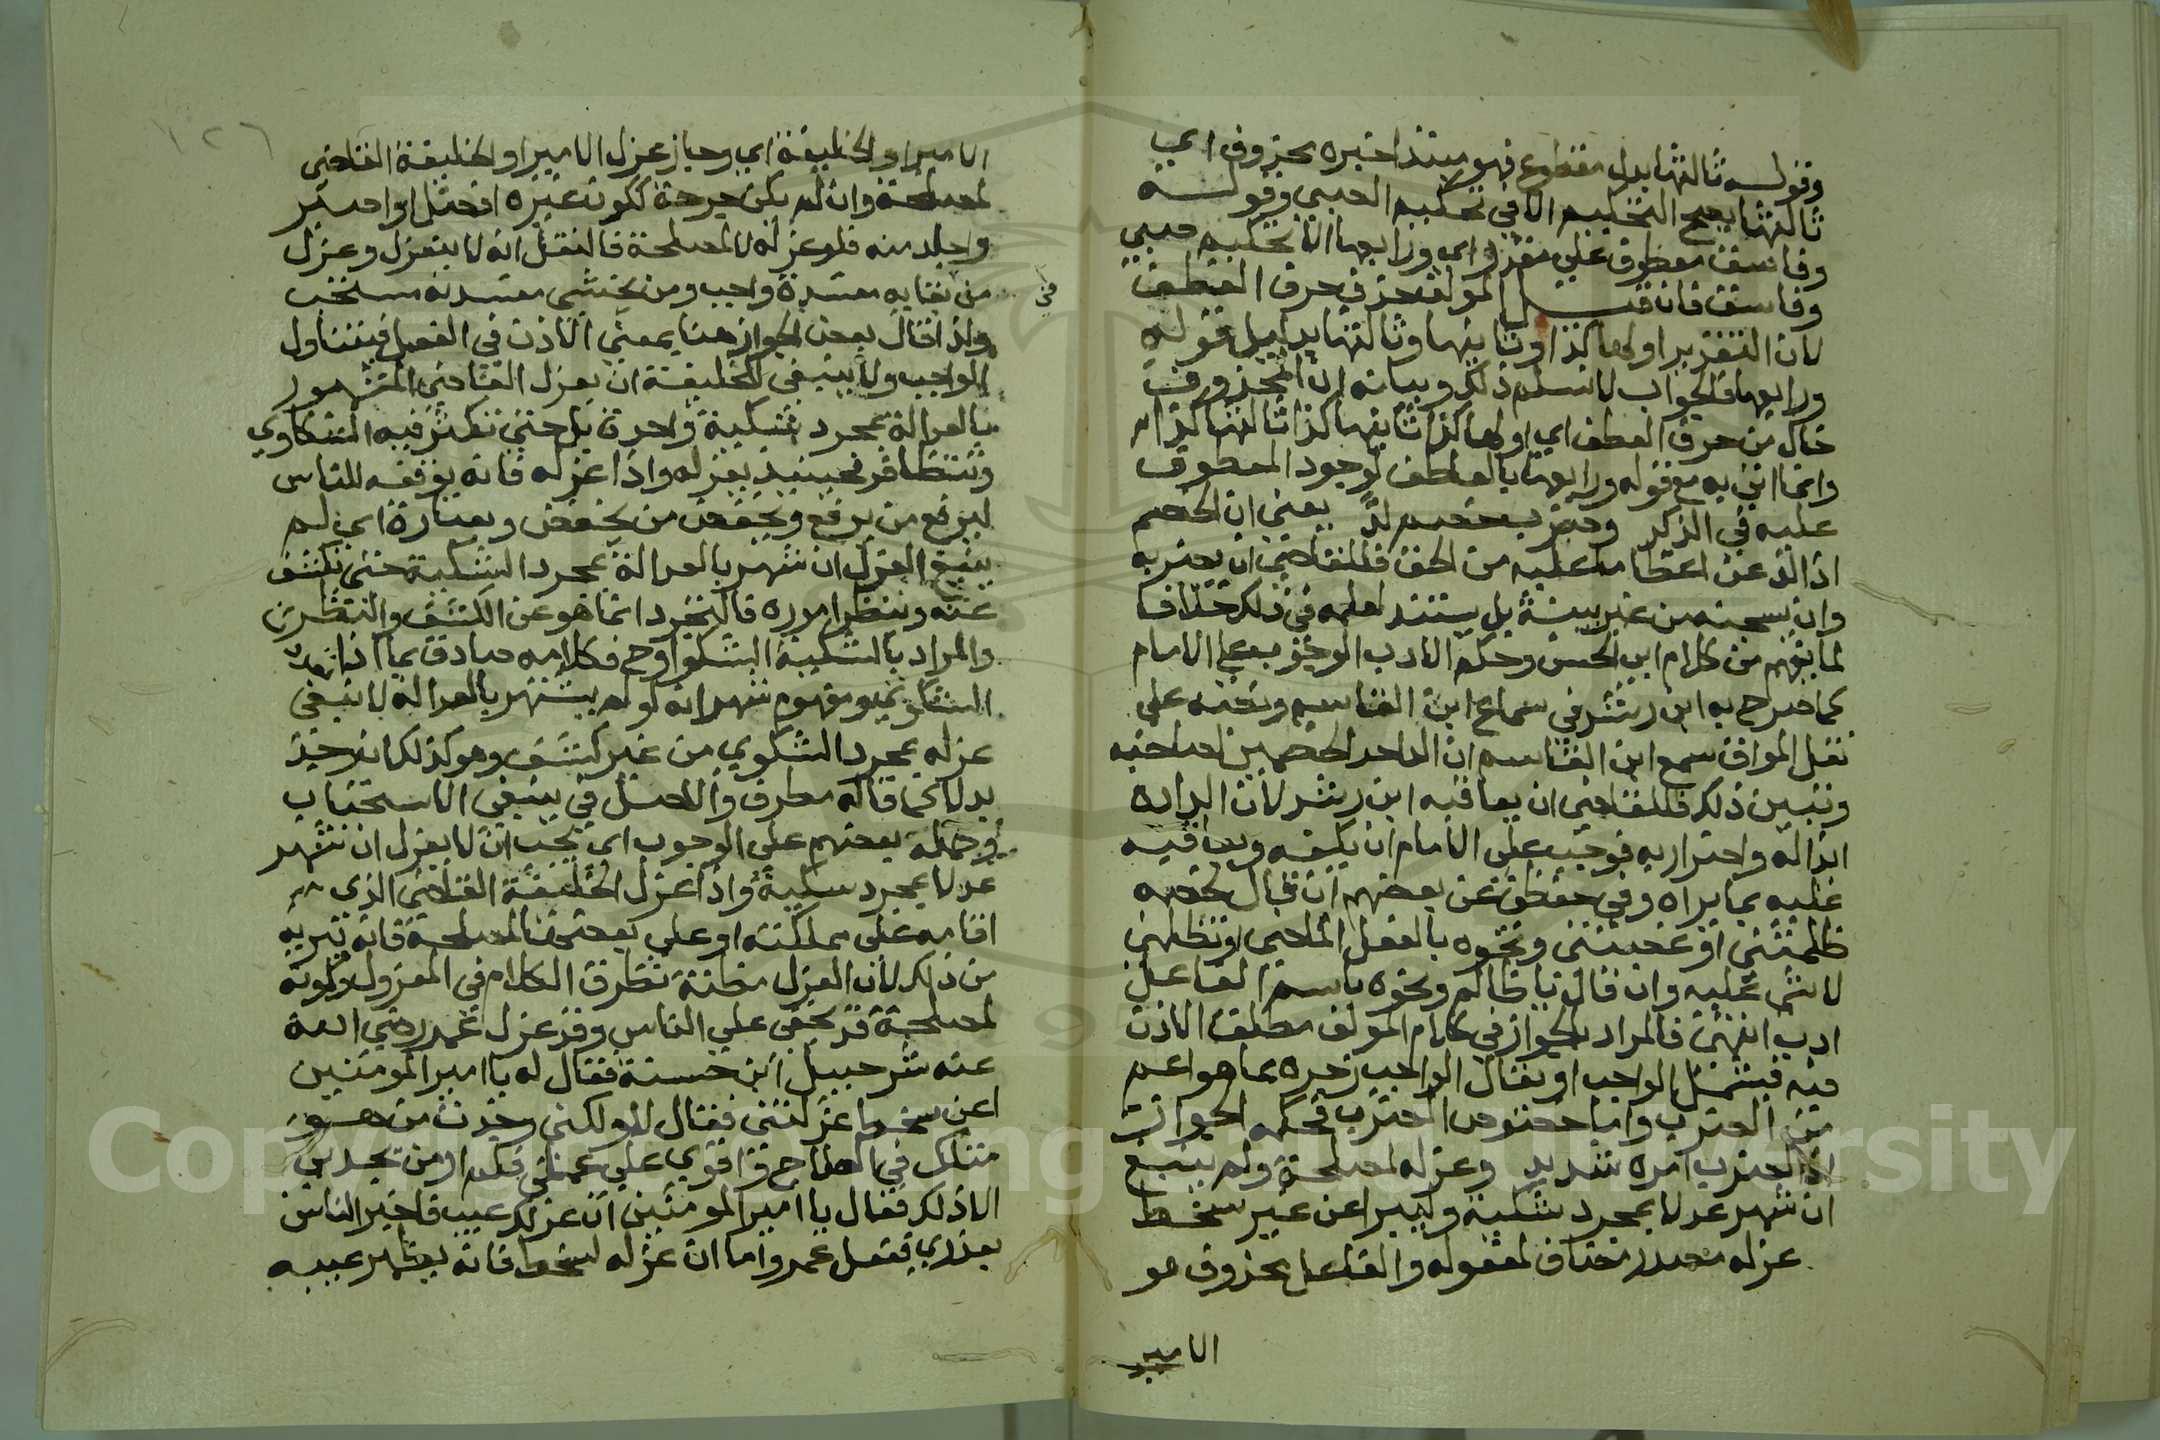 وقوله ثالثها بدل مقطوع فهو مبتدا خبره محذوف اي
ثالثها يصح التحكيم الا في تحكيم الصبي وقوله
وفاسق معطوف على مقدر اي ورابعها الا تحكيم صبي
وفاسق فان قيل المولف حذف حرف العطف
لان التقدير اولها كذا وثانيها وثالثها بدليل قوله
ورابعها فالجواب لا نسلم ذلك وبيانه ان المحذوف
خال من حرف العطف اي اولها كذا ثانيها كذا ثالثها كذا
وانما اتي به مع قوله ورابعها بالعاطف لوجود المعطوف
عليه في الذكر وضرب خصم لد يعني ان الخصم
اذا لد عن اعطا ما عليه من الحق فللقاضي ان يضربه
وان يسجنه من غير بينة بل يستند لعلمه في ذلك خلافا
لما يفهم من كلام ابي الحسن وحكم الادب الوجوب على الامام
كما صرح به ابن رشد في سماع ابن القاسم ونصه على
نقل المواق سمع ابن القاسم ان الد احد الخصمين لصاحبه
وتبين ذلك فللقاضي ان يعاقبه ابن رشد لان الداده
اذاله واضرار به فوجب على الامام ان يكفه ويعاقبه
عليه بما يراه وفي حفظي عن بعضهم ان قال لخصمه
ظلمتني او غصبتني ونحوه بالفعل الماضي او تظلمني
لا شي عليه وان قال يا ظالم ونحوه باسم الفاعل
ادب انتهى فالمراد بالجواز في كلام المولف مطلق الاذن
فيه فيشمل الواجب او يقال الواجب زجره بما هو اعم
من الضرب واما خصوص الضرب فحكمه الجواز
اذ الضرب امره شديد وعزله لمصلحة ولم ينبغ
ان شهر عدلا بمجرد شكية وليبرا عن غير سخط
عزله مصدر مضاف لمفعوله والفاعل محذوف هو
الامير
١٢٦
الامير او الخليفة اي وجاز عزل الامير او الخليفة القاضي
لمصلحة وان لم يكن جرحة ككون غيره افضل او اصبر
واجلد منه فلو عزله لا لمصلحة فالنقل انه لا ينعزل وعزل
من بقايه مفسدة واجب ومن يخشى مفسدته مستحب
في
ولذا قال بعض الجواز هنا بمعنى الاذن في الفعل فيتناول
الواجب ولا ينبغي للخليفة ان يعزل القاضي المشهور
بالعدالة بمجرد شكية واحدة بل حتى تكثر فيه الشكاوي
وتتظافر فحينيذ يعزله واذا عزله فانه يوقفه للناس
ليرفع من يرفع ويخفض من يخفض وبعبارة اي لم
ينبغ العزل ان شهر بالعدالة بمجرد الشكية حتى يكشف
عنه وينظر اموره فالتجرد انما هو عن الكشف والنظر
والمراد بالشكية الشكوا وح فكلامه صادق بما اذا
الشكوى ومفهوم شهر انه لو لم يشتهر بالعدالة لا ينبغي
عزله بمجرد الشكوى من غير كشف وهو كذلك ان وجد
بدلا كما قاله مطرف والاصل في ينبغي الاستحباب
وحمله بعضهم على الوجوب اي يجب ان لا يعزل ان شهر
عدلا بمجرد شكية واذا عزل الخليفة القاضي الذي
اقامه على مملكته او على بعضها لمصلحة فانه يبريه
من ذلك لان العزل مظنة تطرق الكلام في المعزول ولكونه
لمصلحة قد يخفى على الناس وقد عزل عمر رضي الله
عنه شرحبيل ابن حسنة فقال له يا امير المومنين
اعن سخط عزلتني فقال لا ولكني وجدت من هو
مثلك في الصلاح واقوي على عملي فلم ار من يحل لي
الا ذلك فقال يا امير المومنين ان عزلك عيب فاخبر الناس
بعذري ففعل عمر واما ان عزله لسخط فانه يظهر عيبه